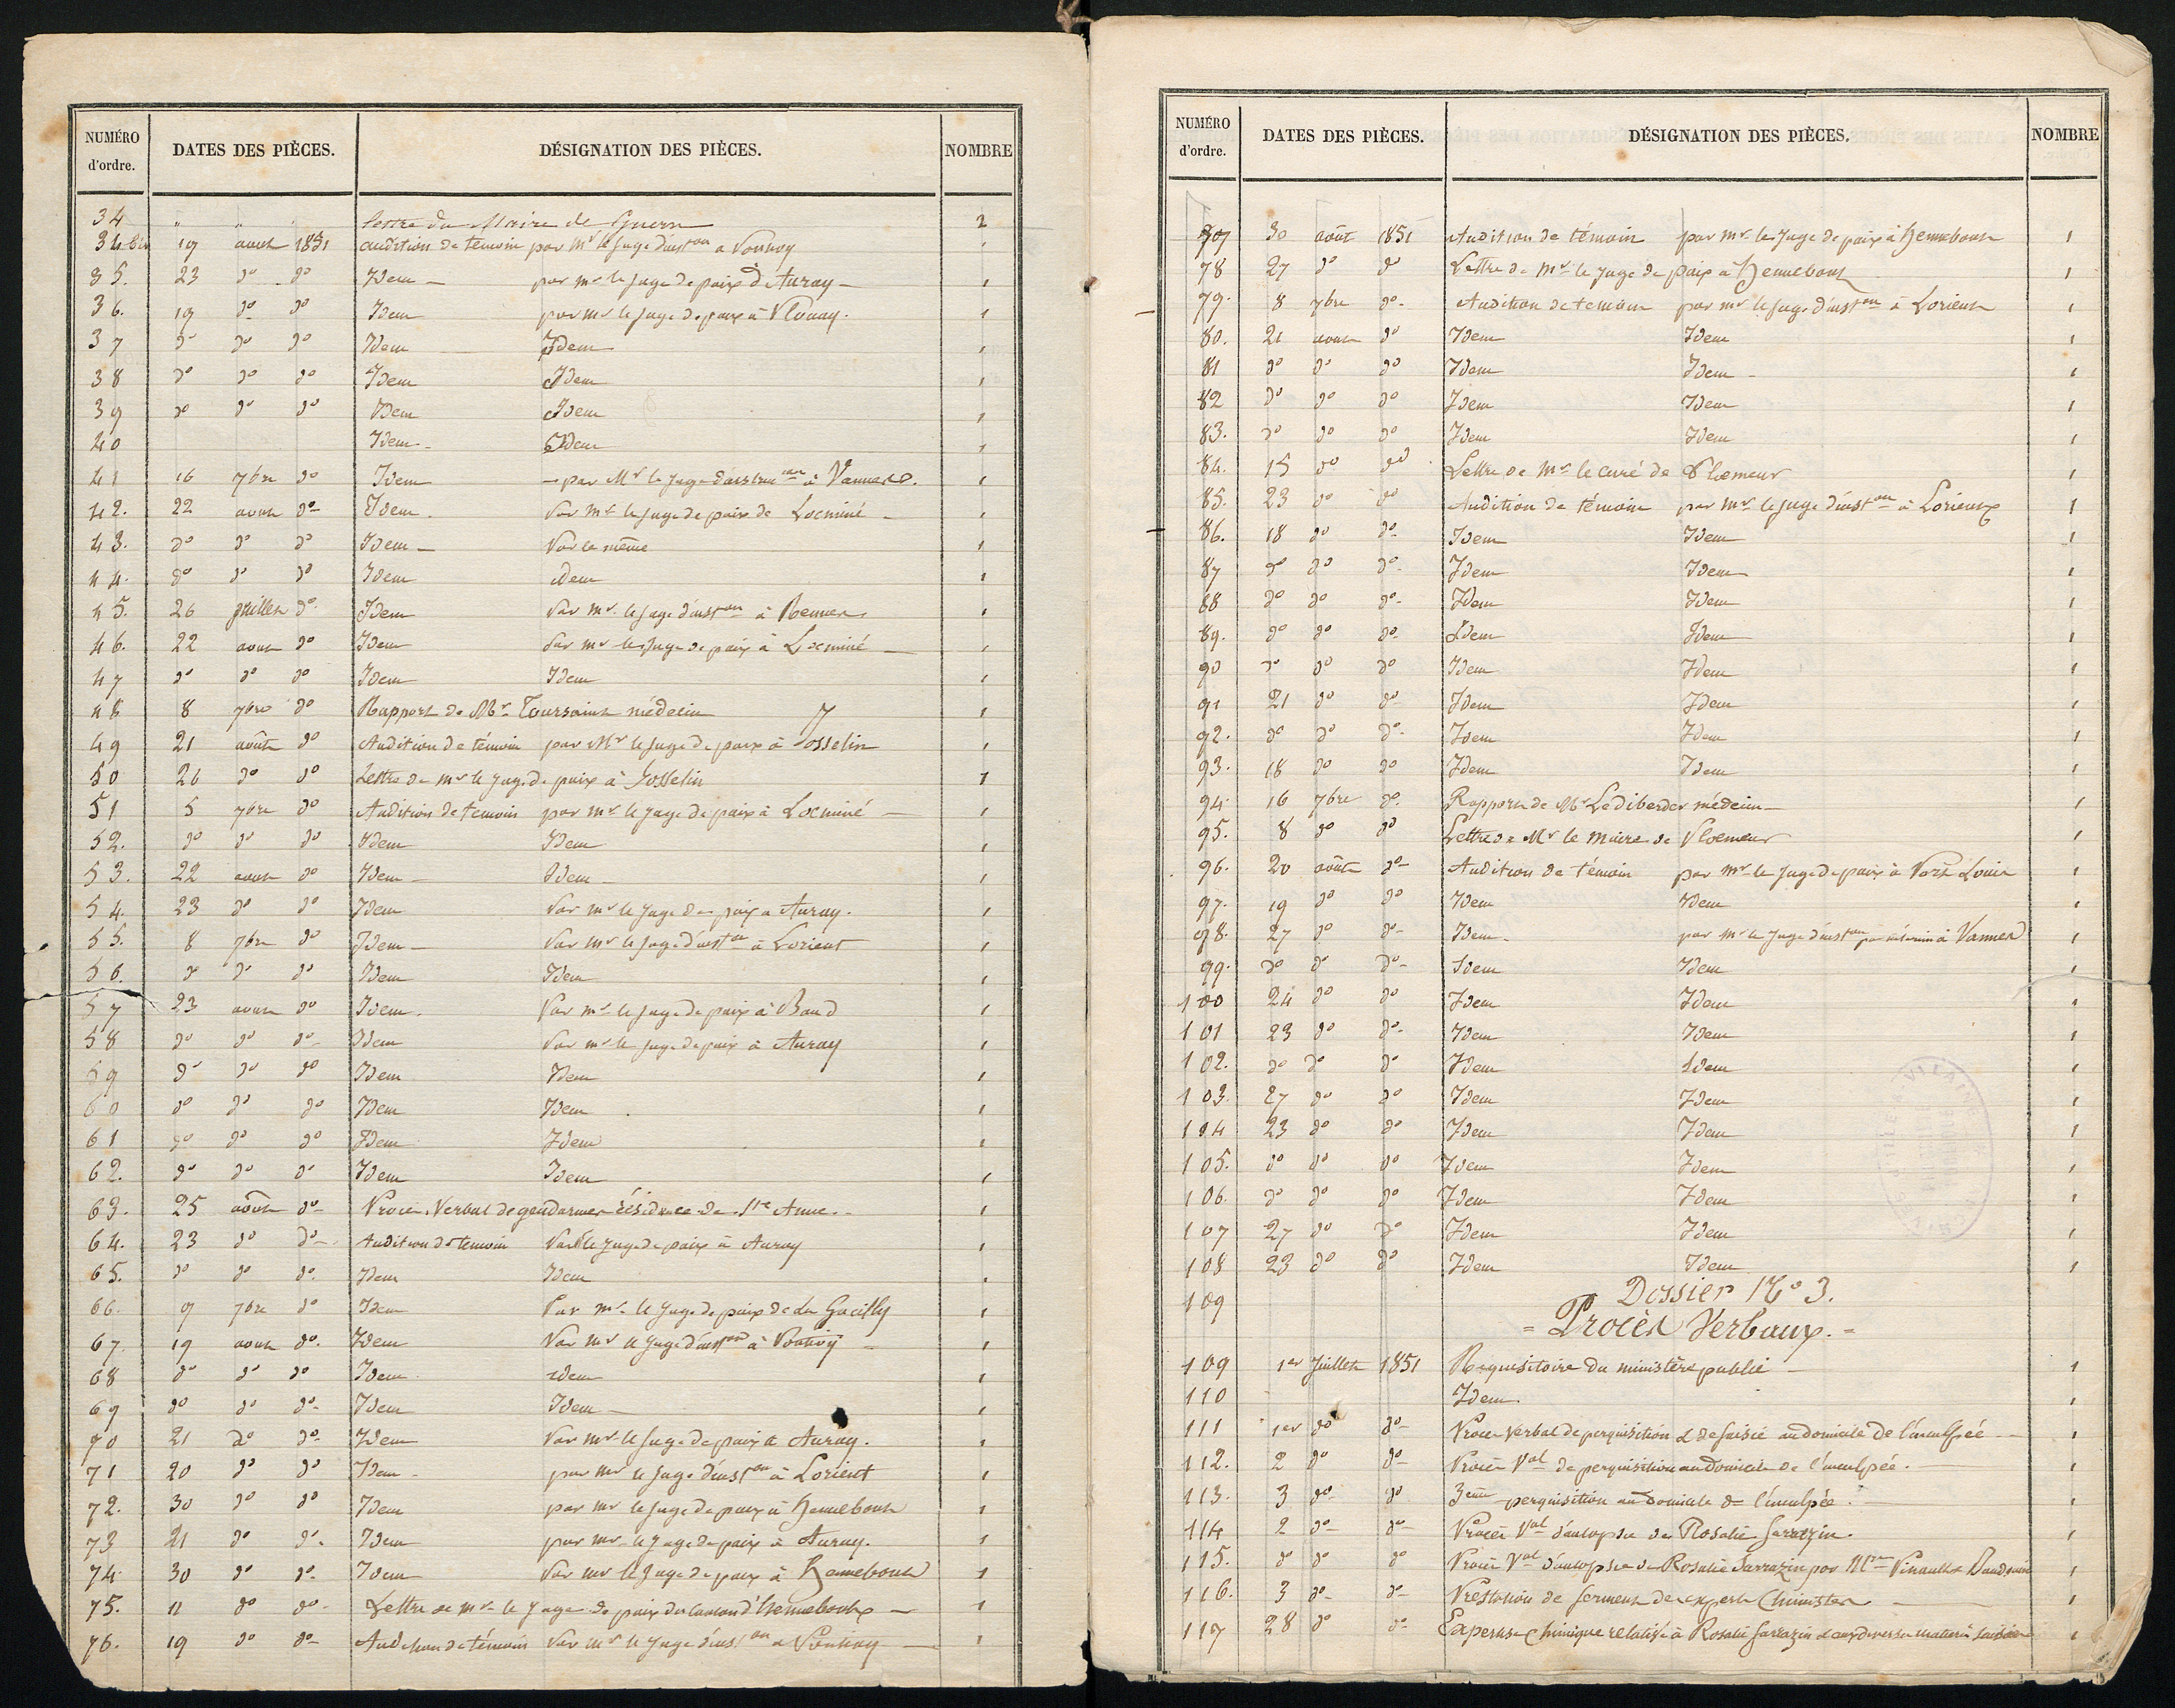 NUMÉRO d'ordre. DATES DES PIÈCES. DÉSIGNATION DES PIÈCES. NOMBRE
34 " " Lettre du Maire de Guern 2
34 bis 19 aout 1851 audition de temoin par Mr le juge d'inston a Pontivy 1
35. 23 do do Idem par mr le juge de paix d'Auray 1
36. 19 do do Idem par mr le juge de paix à Plouay. 1
37 do do do Idem Idem 1
38 do do do Idem Idem 1
39 do do do Idem Idem 1
40 Idem Idem 1
41 16 7bre do Idem par Mr le juge d'instruon à Vannes. 1
42. 22 aout do Idem. Par Mr le juge de paix de Locminé 1
43. do do do Idem Par le même 1
44. do do do Idem idem 1
45. 26 juillet do Idem Par mr le juge d'inston à Rennes 1
46. 22 aout do Idem Par mr le juge de paix à Locminé 1
47 do do do Idem Idem 1
48 8 7bre do Rapport de Mr Toursaint médecin 1
49 21 août do Audition de témoin par Mr le juge de paix à Josselin 1
50 26 do do Lettre de mr le juge de paix à Josselin 1
51 5 7bre do Audition de temoin par mr le juge de paix à Locminé 1
52. do do do Idem Idem 1
53. 22 aout do Idem Idem 1
54. 23 do do Idem Par mr le juge de paix a Auray. 1
55. 8 7bre do Idem Par mr le juge d'inston à Lorient 1
56. do do do Idem Idem 1
57 23 aout do Idem. Par mr le juge de paix à Baud 1
58 do do do Idem Par mr le juge de paix à Auray 1
59 do do do Idem Idem 1
60 do do do Idem Idem 1
61 do do do Idem Idem 1
62. do do do Idem Idem 1
63. 25 août do Procès Verbal de gendarmes résidence de Ste Anne. 1
64. 23 do do Audition de temoin Par le juge de paix à Auray 1
65. do do do Idem Idem 1
66. 9 7bre do Idem Par mr le juge de paix de La Gacilly 1
67. 19 aout do Idem Par Mr le juge d'inston à Pontivy 1
68 do do do Idem idem 1
69 do do do Idem Idem 1
70 21 do do Idem Par mr le juge de paix à Auray. 1
71 20 do do Idem par Mr le juge d'inston à Lorient 1
72. 30 do do Idem par mr le juge de paix à Hennebont 1
73 21 do do Idem par mr le juge de paix à Auray. 1
74. 30 do do Idem Par mr le juge de paix à Hennebont 1
75. 11 do do Lettre de mr le juge de paix du canton d'Hennebont 1
76. 19 do do Audition de témoin Par mr le juge d'inston a Pontivy 1
NUMÉRO d'ordre. DATES DES PIÈCES. DÉSIGNATION DES PIÈCES. NOMBRE
77 30 août 1851 Audition de témoin par mr le juge de paix à Hennebont 1
78 27 do do Lettre de Mr le juge de paix à Hennebont 1
79. 8 7bre do Audition de temoin par mr le juge d'inston à Lorient 1
80. 21 aout do Idem Idem 1
81 do do do Idem Idem 1
82 do do do Idem Idem 1
83. do do do Idem Idem 1
84. 15 do do Lettre de Mr le curé de Ploemeur 1
85. 23 do do Audition de témoin par mr le juge d'inston à Lorient 1
86. 18 do do Idem Idem 1
87 do do do Idem Idem 1
88 do do do Idem Idem 1
89. do do do Idem Idem 1
90 do do do Idem Idem 1
91 21 do do Idem Idem 1
92. do do do Idem Idem 1
93. 18 do do Idem Idem 1
94. 16 7bre do Rapport de Mr Lediberder médecin 1
95. 8 do do Lettre de Mr le Maire de Ploemeur 1
96. 20 août do Audition de témoin par Mr le juge de paix à Port Louis 1
97. 19 do do Idem Idem 1
98. 27 do do Idem. par mr le juge d'inston par interim à Vannes 1
99. do do do Idem Idem 1
100 24 do do Idem Idem 1
101 23 do do Idem Idem 1
102. do do do Idem Idem 1
103. 27 do do Idem Idem 1
104 23 do do Idem Idem 1
105. do do do Idem Idem 1
106. do do do Idem Idem 1
107 27 do do Idem Idem 1
108 23 do do Idem Idem 1
109 Dossier No 3.
= Procès Verbaux. =
109 1er Juillet 1851 Requisitoire du ministère public 1
110 Idem. 1
111 1er do do Procès Verbal de perquisition & de saisie au domicile de l'inculpée 1
112. 2 do do Procès Val de perquisition au domicile de l'inculpée. 1
113. 3 do do 3eme perquisition au domicile de l'inculpée. 1
114 2 do do Procès Val d'autopsie de Rosalie Sarrazin. 1
115. do do do Procès Val d'autopsie de Rosalie Sarrazin par Mrs Pinault & Baudouin 1
116. 3 do do Prestation de serment des experts Chimistes 1
117 28 do do Expertise Chimique relative à Rosalie Sarrazin & aux diverses matières saisies 1